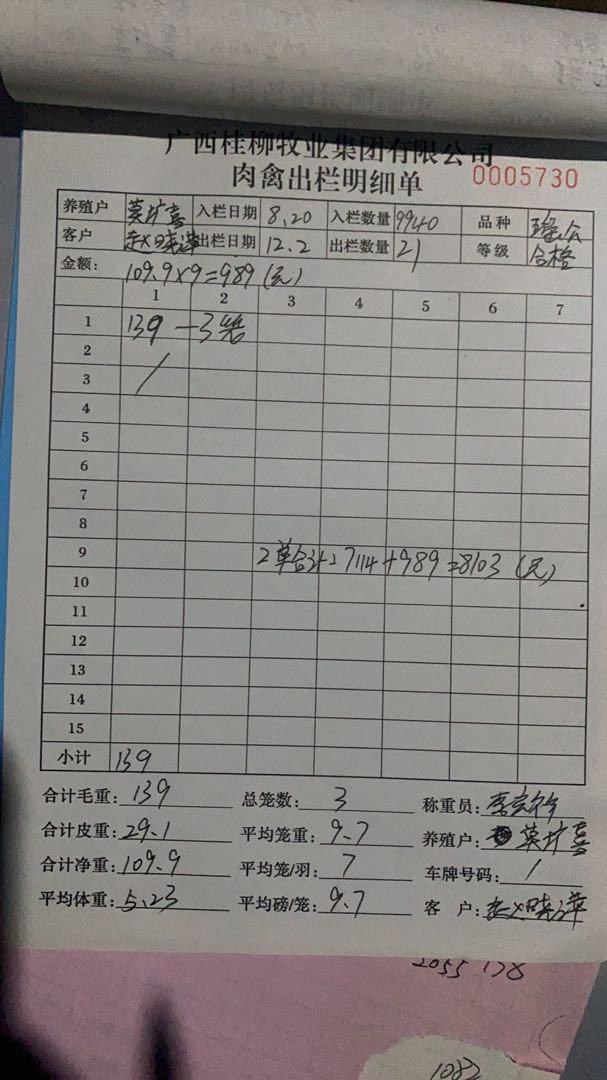 广西桂柳牧业集团有限公司
肉禽出栏明细单 0005730
养殖户 莫扩喜 入栏日期 8.20 入栏数量 9940 品种
客户 出栏日期 12.2 出栏数量 21 等级 合格
金额: 109.9×9=989 (元)
1 2 3 4 5 6 7
1 139 — 3笼
2
3 /
4
5
6
7
8
9 2单合计=7114+989=8103 (元)
10
11
12
13
14
15
小计 139
合计毛重: 139 总笼数: 3 称重员:
合计皮重: 29.1 平均笼重: 9.7 养殖户: 莫扩喜
合计净重: 109.9 平均笼/羽: 7 车牌号码: /
平均体重: 5.23 平均磅/笼: 9.7 客 户:
2055 138
1082